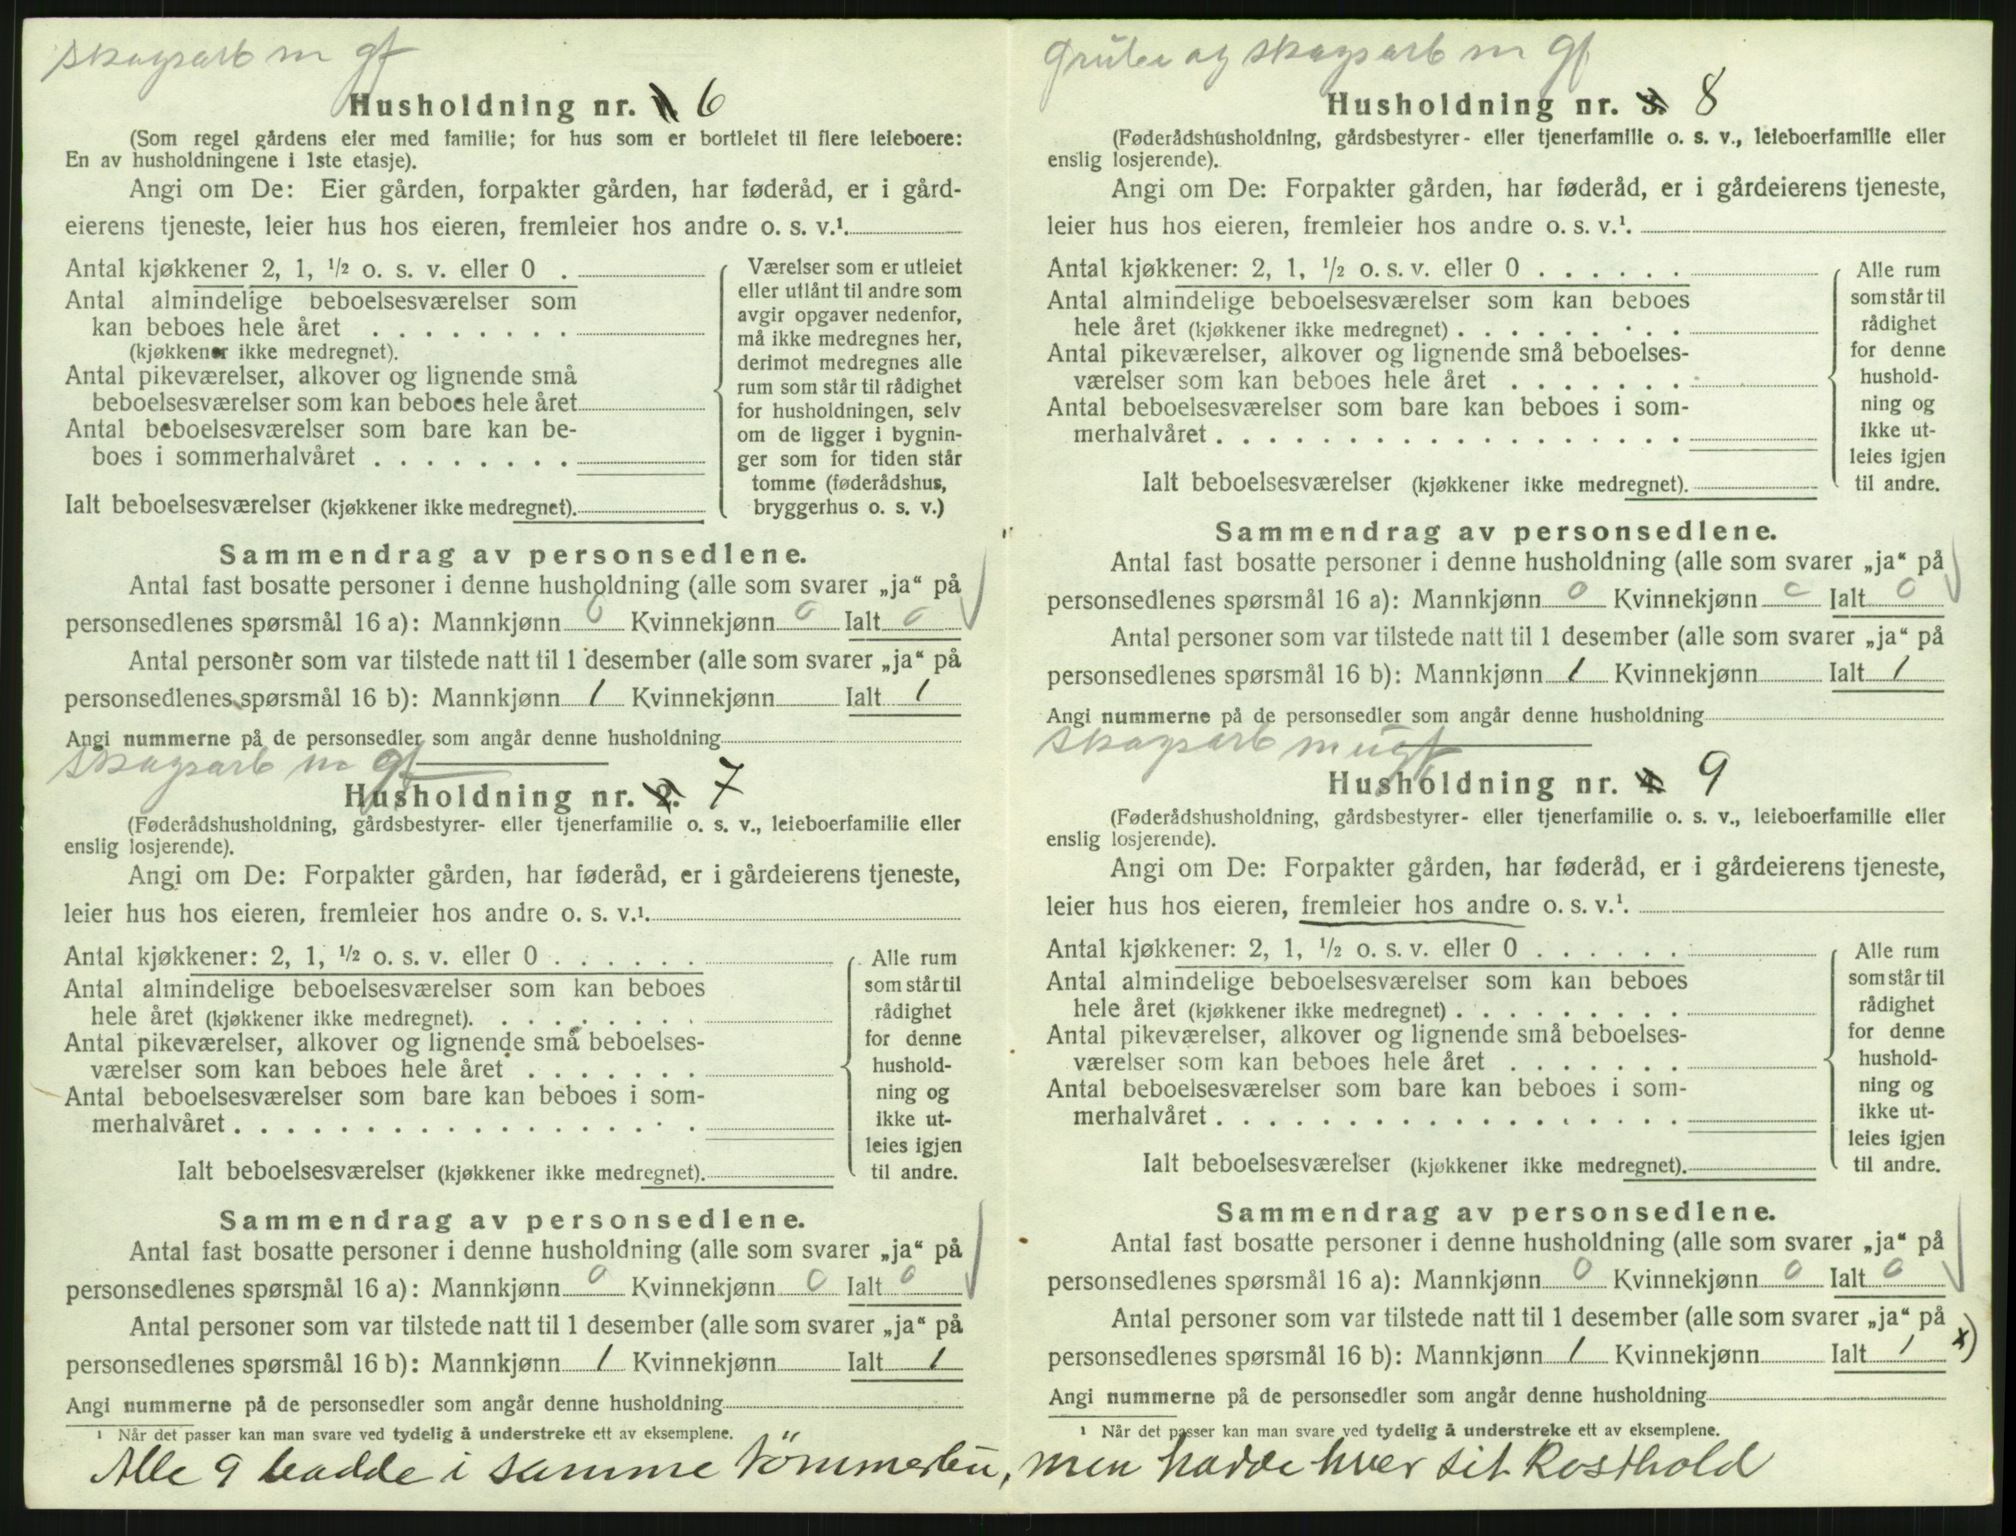 Skogsarb m gf
Husholdning nr. 1. 6
(Som regel gårdens eier med familie; for hus som er bortleiet til flere leieboere:
En av husholdningene i 1ste etasje).
Angi om De: Eier gården, forpakter gården, har føderåd, er i gård-
eierens tjeneste, leier hus hos eieren, fremleier hos andre o. s. v.¹.
Antal kjøkkener 2, 1, ½ o. s. v. eller 0 .
Antal almindelige beboelsesværelser som
kan beboes hele året . . . . . . . .
(kjøkkener ikke medregnet).
Antal pikeværelser, alkover og lignende små
beboelsesværelser som kan beboes hele året
Antal beboelsesværelser som bare kan be-
boes i sommerhalvåret . . . . . . . .
Ialt beboelsesværelser (kjøkkener ikke medregnet).
Værelser som er utleiet
eller utlånt til andre som
avgir opgaver nedenfor,
må ikke medregnes her,
derimot medregnes alle
rum som står til rådighet
for husholdningen, selv
om de ligger i bygnin-
ger som for tiden står
tomme (føderådshus,
bryggerhus o. s. v.)
Sammendrag av personsedlene.
Antal fast bosatte personer i denne husholdning (alle som svarer „ja“ på
personsedlenes spørsmål 16 a): Mannkjønn 0 Kvinnekjønn 0 Ialt 0
Antal personer som var tilstede natt til 1 desember (alle som svarer „ja“ på
personsedlenes spørsmål 16 b): Mannkjønn 1 Kvinnekjønn Ialt 1
Angi nummerne på de personsedler som angår denne husholdning
Skogsarb m gf
Husholdning nr. 2. 7
(Føderådshusholdning, gårdsbestyrer- eller tjenerfamilie o. s. v., leieboerfamilie eller
enslig losjerende).
Angi om De: Forpakter gården, har føderåd, er i gårdeierens tjeneste,
leier hus hos eieren, fremleier hos andre o. s. v.¹.
Antal kjøkkener: 2, 1, ½ o. s. v. eller 0 . . . . . .
Antal almindelige beboelsesværelser som kan beboes
hele året (kjøkkener ikke medregnet). . . . . . . . .
Antal pikeværelser, alkover og lignende små beboelses-
værelser som kan beboes hele året . . . . . . .
Antal beboelsesværelser som bare kan beboes i som-
merhalvåret . . . . . . . . . . . . . . . . . .
Ialt beboelsesværelser (kjøkkener ikke medregnet).
Alle rum
som står til
rådighet
for denne
hushold-
ning og
ikke ut-
leies igjen
til andre.
Sammendrag av personsedlene.
Antal fast bosatte personer i denne husholdning (alle som svarer „ja“ på
personsedlenes spørsmål 16 a): Mannkjønn 0 Kvinnekjønn 0 Ialt 0
Antal personer som var tilstede natt til 1 desember (alle som svarer „ja“ på
personsedlenes spørsmål 16 b): Mannkjønn 1 Kvinnekjønn Ialt 1
Angi nummerne på de personsedler som angår denne husholdning
¹ Når det passer kan man svare ved tydelig å understreke ett av eksemplene.
Grube og skogsarb m gf
Husholdning nr. 3. 8
(Føderådshusholdning, gårdsbestyrer- eller tjenerfamilie o. s. v., leieboerfamilie eller
enslig losjerende).
Angi om De: Forpakter gården, har føderåd, er i gårdeierens tjeneste,
leier hus hos eieren, fremleier hos andre o. s. v.¹.
Antal kjøkkener: 2, 1, ½ o. s. v. eller 0 . . . . . .
Antal almindelige beboelsesværelser som kan beboes
hele året (kjøkkener ikke medregnet) . . . . . . . . .
Antal pikeværelser, alkover og lignende små beboelses-
værelser som kan beboes hele året . . . . . . .
Antal beboelsesværelser som bare kan beboes i som-
merhalvåret . . . . . . . . . . . . . . . . . .
Ialt beboelsesværelser (kjøkkener ikke medregnet).
Alle rum
som står til
rådighet
for denne
hushold-
ning og
ikke ut-
leies igjen
til andre.
Sammendrag av personsedlene.
Antal fast bosatte personer i denne husholdning (alle som svarer „ja“ på
personsedlenes spørsmål 16 a): Mannkjønn 0 Kvinnekjønn 0 Ialt 0
Antal personer som var tilstede natt til 1 desember (alle som svarer „ja“ på
personsedlenes spørsmål 16 b): Mannkjønn 1 Kvinnekjønn Ialt 1
Angi nummerne på de personsedler som angår denne husholdning
Skogsarb m ugf
Husholdning nr. 4. 9
(Føderådshusholdning, gårdsbestyrer- eller tjenerfamilie o. s. v., leieboerfamilie eller
enslig losjerende).
Angi om De: Forpakter gården, har føderåd, er i gårdeierens tjeneste,
leier hus hos eieren, fremleier hos andre o. s. v.¹.
Antal kjøkkener: 2, 1, ½ o. s. v. eller 0 . . . . . .
Antal almindelige beboelsesværelser som kan beboes
hele året (kjøkkener ikke medregnet) . . . . . . . . .
Antal pikeværelser, alkover og lignende små beboelses-
værelser som kan beboes hele året . . . . . . .
Antal beboelsesværelser som bare kan beboes i som-
merhalvåret . . . . . . . . . . . . . . . . . .
Ialt beboelsesværelser (kjøkkener ikke medregnet).
Alle rum
som står til
rådighet
for denne
hushold-
ning og
ikke ut-
leies igjen
til andre.
Sammendrag av personsedlene.
Antal fast bosatte personer i denne husholdning (alle som svarer „ja“ på
personsedlenes spørsmål 16 a): Mannkjønn 0 Kvinnekjønn 0 Ialt 0
Antal personer som var tilstede natt til 1 desember (alle som svarer „ja“ på
personsedlenes spørsmål 16 b): Mannkjønn 1 Kvinnekjønn Ialt 1 x)
Angi nummerne på de personsedler som angår denne husholdning
¹ Når det passer kan man svare ved tydelig å understreke ett av eksemplene.
Alle 9 bodde i samme tömmerbu, men hadde hver sit kosthold